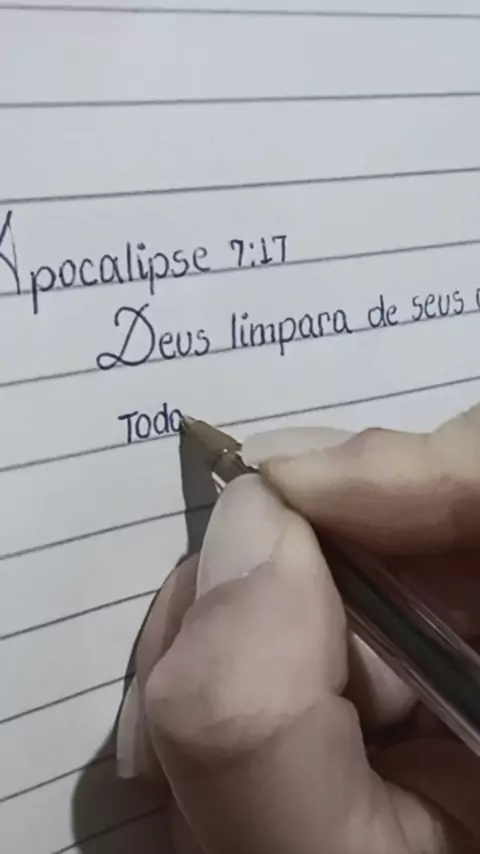 Apocalipse 7:17
Deus limpara de seus
Toda